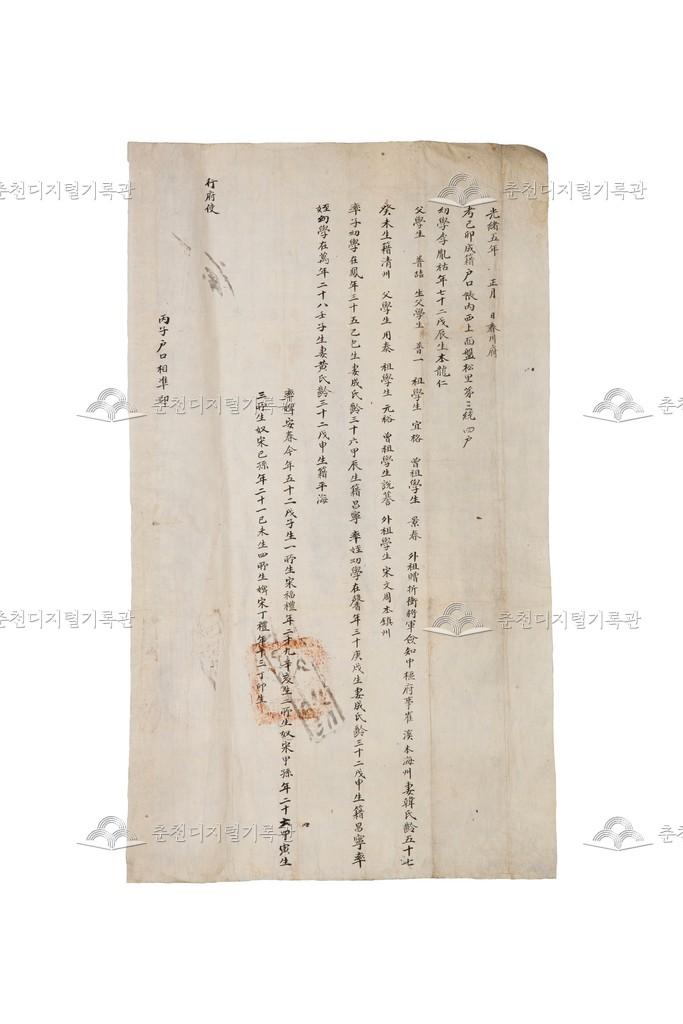 光緖五年 正月 日春川府
考己卯成籍戶口帳內西上面盤松里第三統四戶
幼學李胤祜年七十二戊辰生本龍仁
父學生 普喆 生父學生 普一 祖學生 宜格 曾祖學生 景春 外祖贈折衝將軍僉知中樞府事崔溪本海州妻韓氏齡五十七
癸未生籍淸州 父學生用泰 祖學生元裕 曾祖學生說 外祖學生宋文周本鎭州
率子幼學在鳳年三十五乙巳生妻成氏齡三十六甲辰生籍昌寧率姪幼學在馨年三十庚戌生妻成氏齡三十二戊申生籍昌寧率
姪幼學在萬年二十八壬子生妻黃氏齡三十二戊申生籍平海
率婢安春今年五十二戊子生一所生宋福禮年二十九辛亥生二所生奴宋甲孫年二十六甲寅生
三所生奴宋己孫年二十一己未生四所生婢宋丁禮年十三丁卯生
行府使
丙子戶口相準
춘천디지털기록관
춘천디지털기록관
춘천디지털기록관
춘천디지털기록관
춘천디지털기록관
춘천디지털기록관